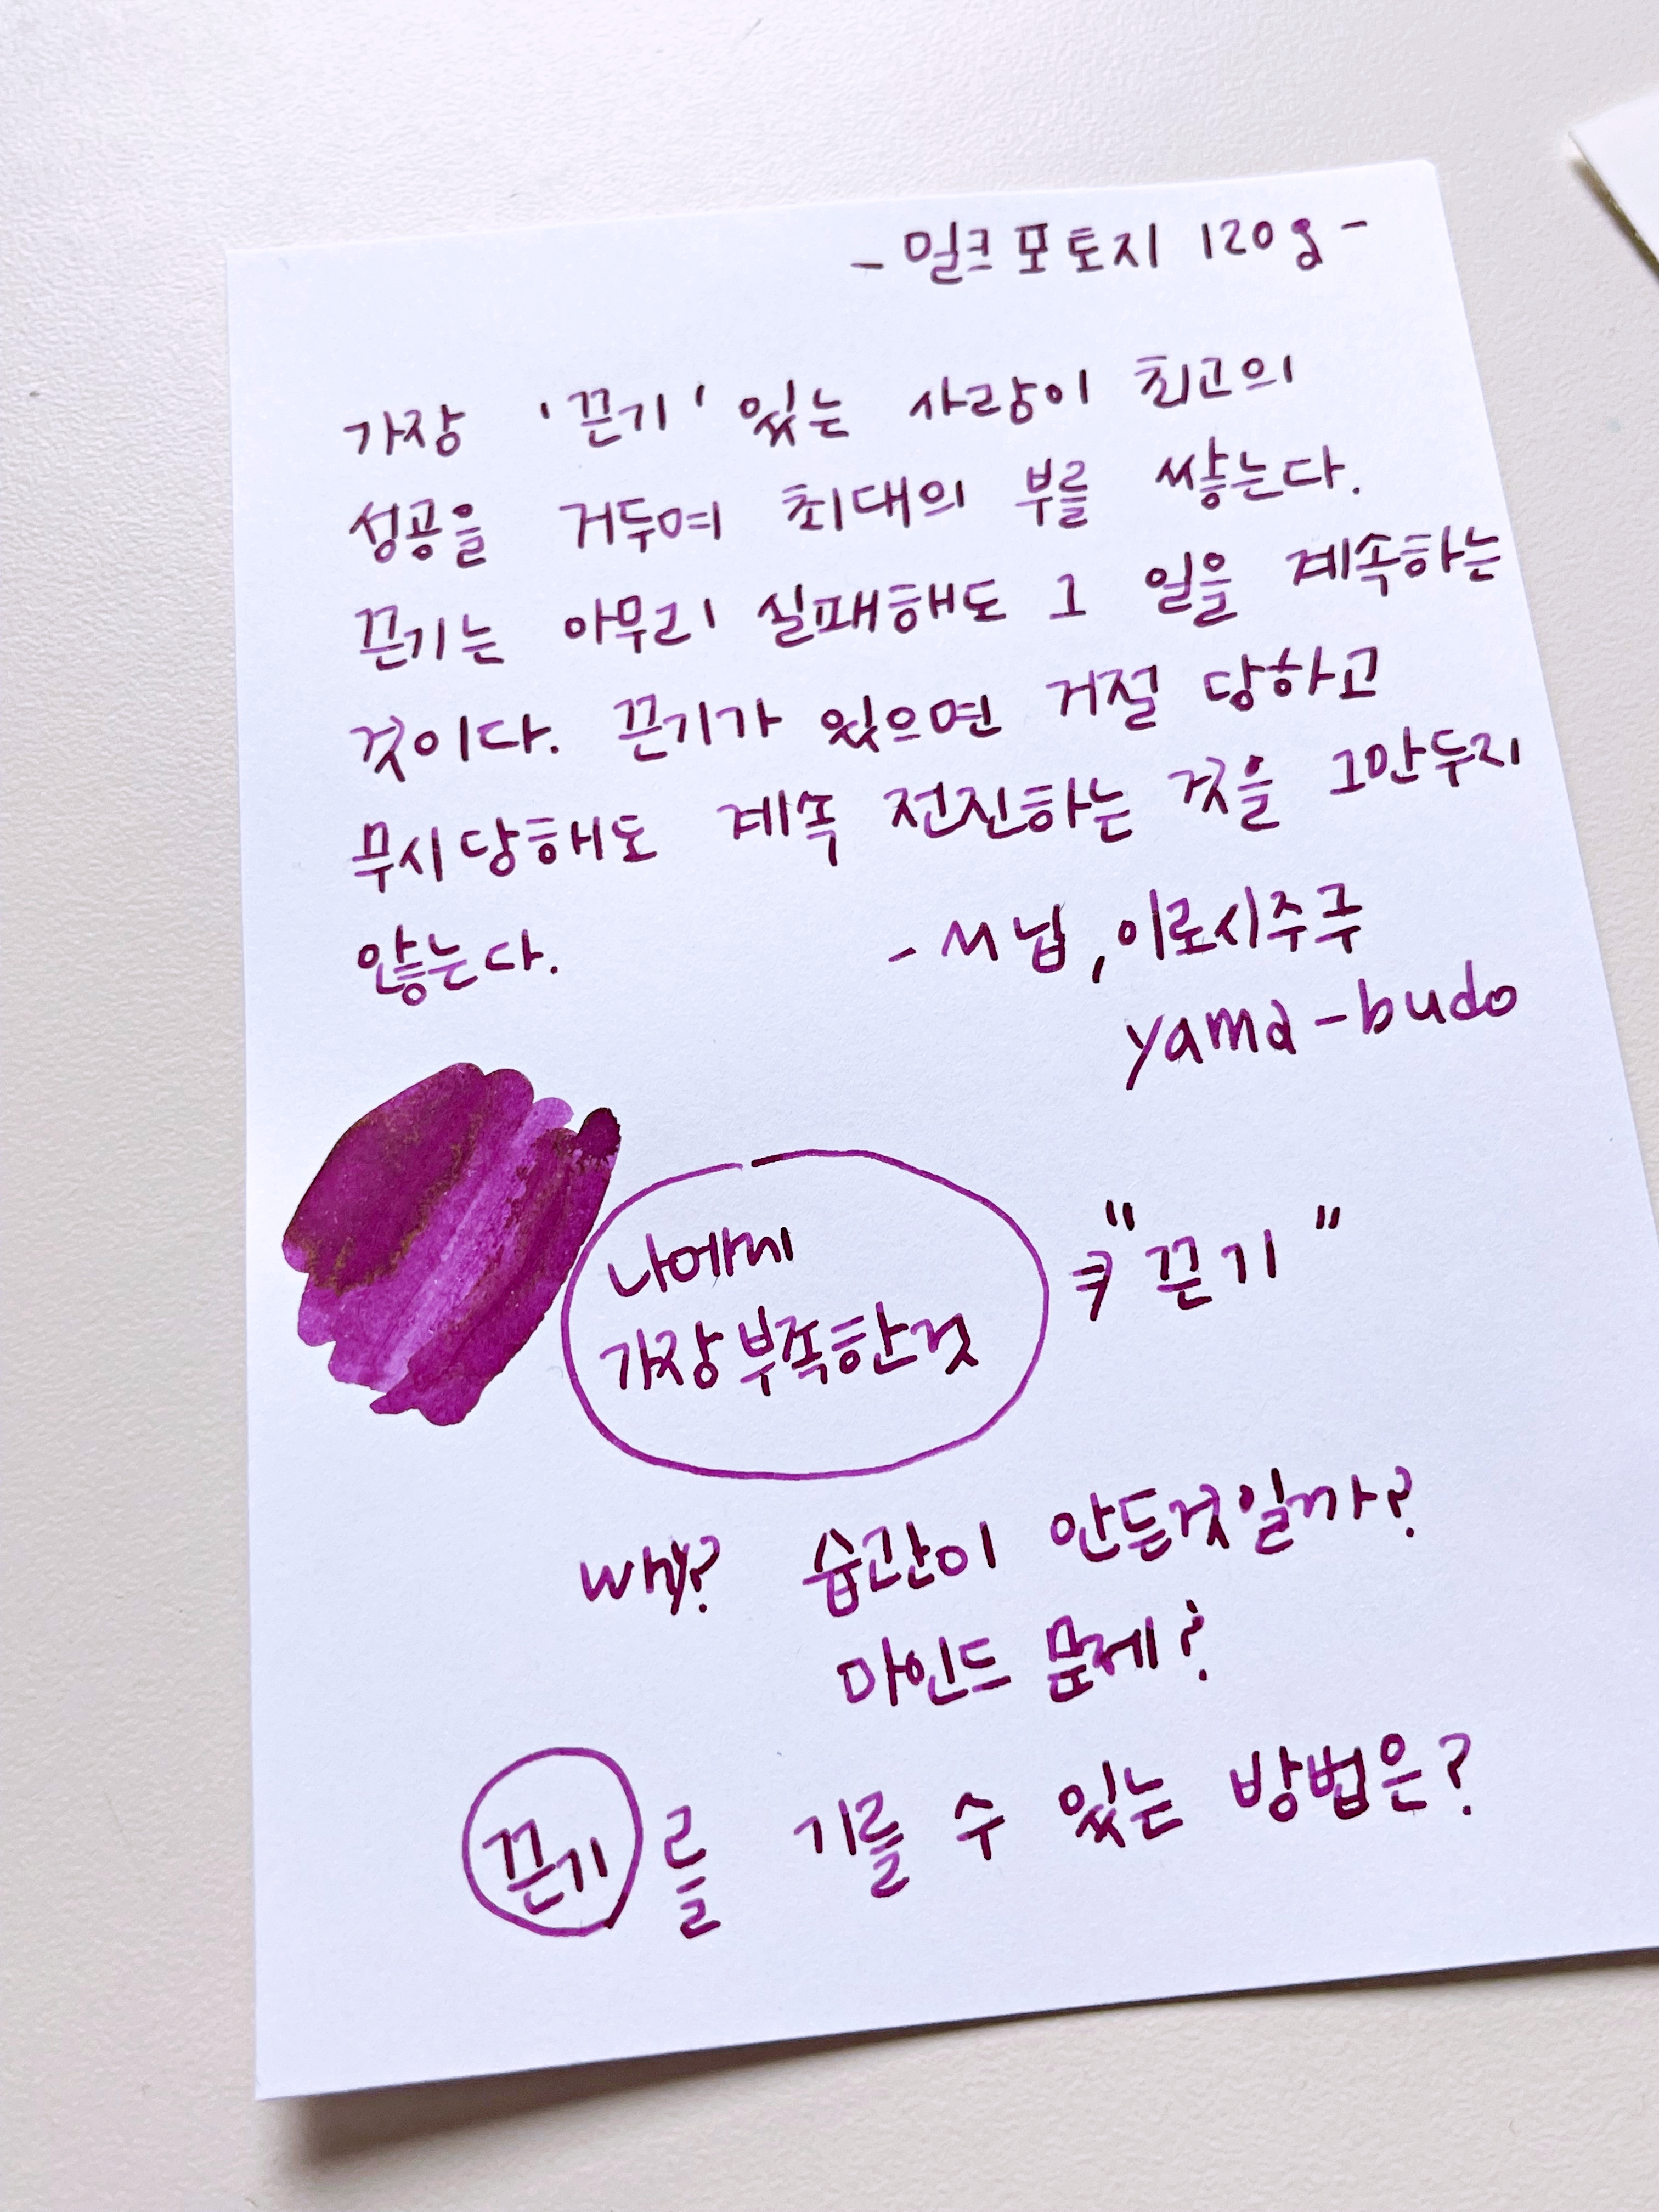 - 밀크 포토지 120g -
가장 '끈기' 있는 사람이 최고의
성공을 거두며 최대의 부를 쌓는다.
끈기는 아무리 실패해도 그 일을 계속하는
것이다. 끈기가 있으면 거절 당하고
무시당해도 계속 전진하는 것을 그만두지
않는다. - M닙, 이로시주쿠
yama-budo
나에게
가장 부족한것
"끈기"
why? 습관이 안든것일까?
마인드 문제?
끈기를 기를 수 있는 방법은?